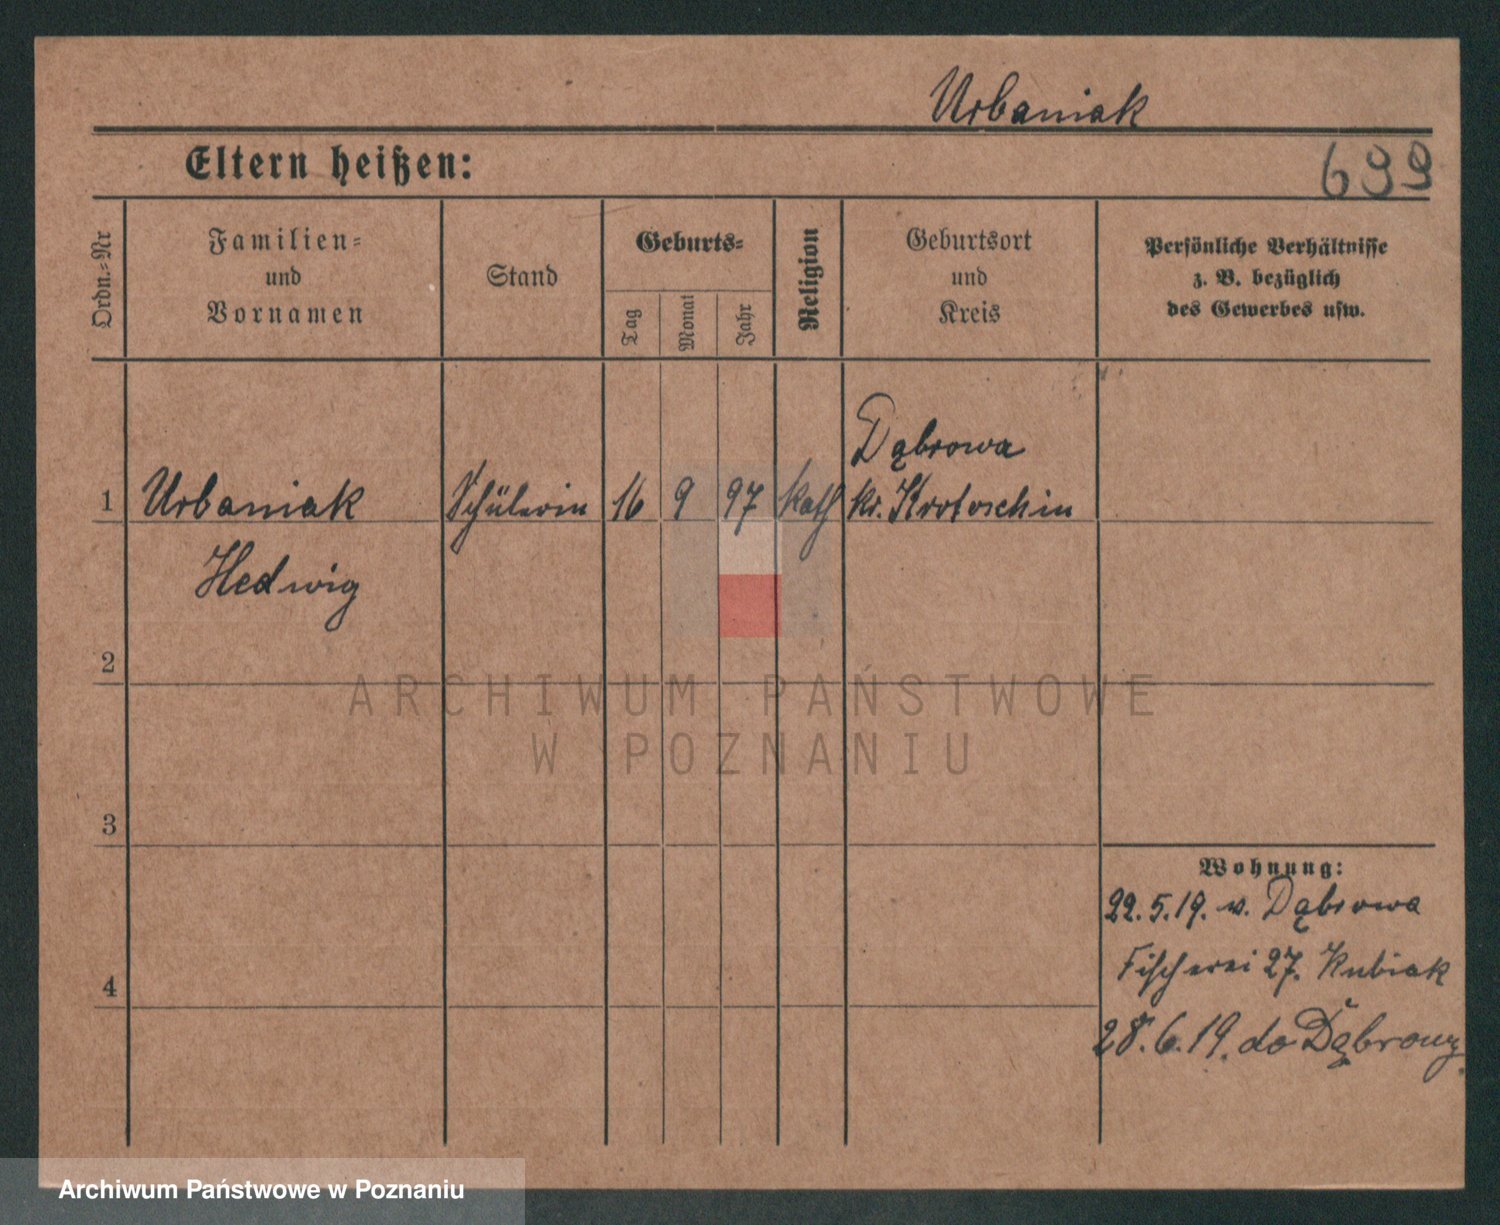 Urbaniak
Eltern heißen:
699
Ordn.-Nr
Familien-
und
Vornamen
Stand
Geburts-
Tag
Monat
Jahr
Religion
Geburtsort
und
Kreis
Persönliche Verhältnisse
z. B. bezüglich
des Gewerbes usw.
Dąbrowa
1 Urbaniak Schülerin 16 9 97 kath kr. Krotoschin
Hedwig
2
ARCHIWUM PAŃSTWOWE
W POZNANIU
3
Wohnung:
22.5.19. v. Dąbrowa
Fischerei 27. Kubiak
4
28.6.19. do Dąbrowy
Archiwum Państwowe w Poznaniu